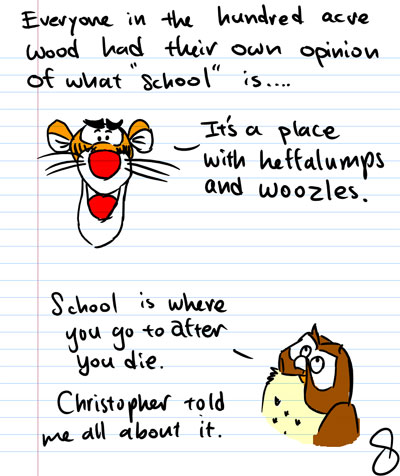 Everyone in the hundred acre
wood had their own opinion
of what "school" is....
It's a place
with heffalumps
and woozles.
School is where
you go to after
you die.
Christopher told
me all about it.
8